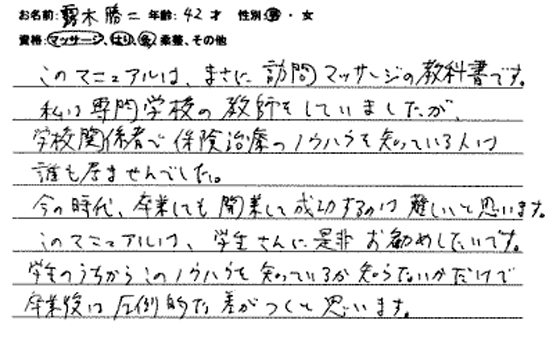 お名前: 露木勝二 年齢: 42才 性別: 男・女
資格: マッサージ、はり、灸、柔整、その他
このマニュアルは、まさに訪問マッサージの教科書です。
私は専門学校の教師をしていましたが、
学校関係者で保険治療のノウハウを知っている人は
誰も居ませんでした。
今の時代、卒業しても開業して成功するのは難しいと思います。
このマニュアルは、学生さんに是非お勧めしたいです。
学生のうちからこのノウハウを知っているか知らないかだけで
卒業後は圧倒的な差がつくと思います。